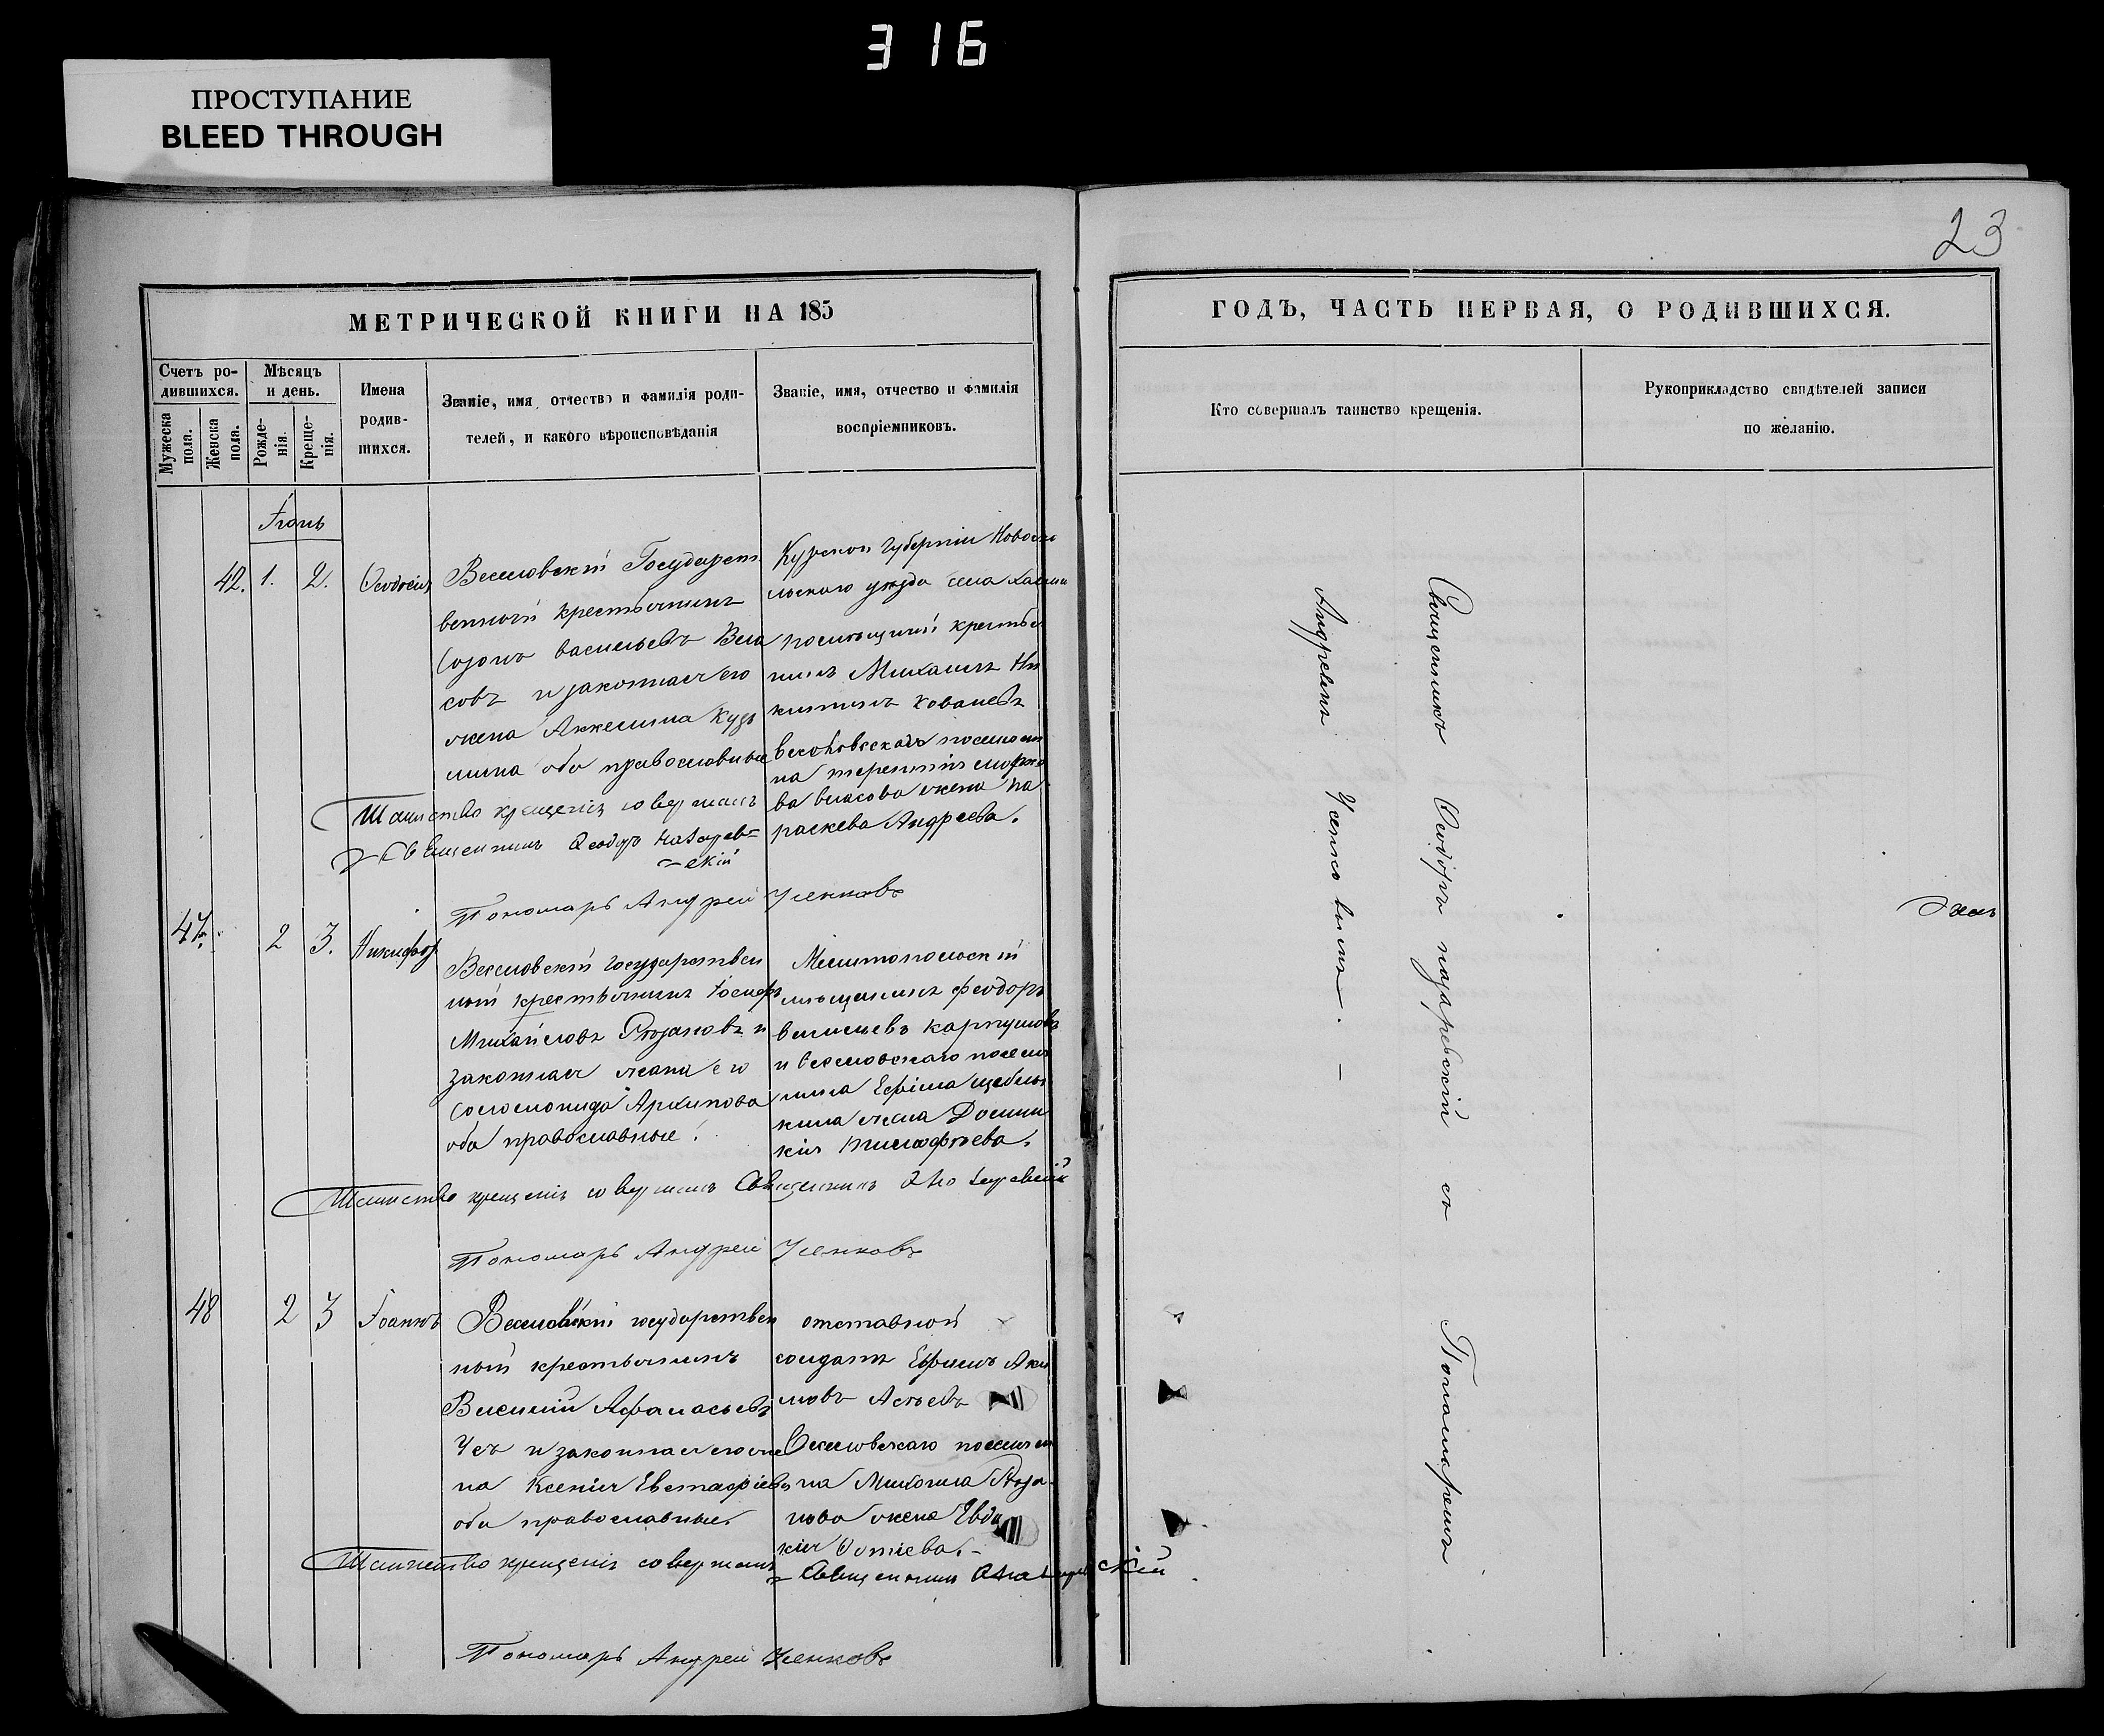 316
ПРОСТУПАНИЕ
BLEED THROUGH
23
МЕТРИЧЕСКОЙ КНИГИ НА 185
ГОДЪ, ЧАСТЬ ПЕРВАЯ, О РОДИВШИХСЯ.
Счетъ ро-
дившихся.
Мужеска
пола.
Женска
пола.
Мѣсяцъ
и день.
Рожде-
нія.
Креще-
нія.
Имена
родив-
шихся.
Званіе, имя, отчество и фамилія роди-
телей, и какого вѣроисповѣданія
Званіе, имя, отчество и фамилія
воспріемниковъ.
Кто совершалъ таинство крещенія.
Рукоприкладство свидѣтелей записи
по желанію.
Іюнь
42. 1. 2. Ѳеодосія
Веселовскій Государст
венный крестьянинъ
Созонъ васильевъ Вла
совъ и законная его
жена Анкелина Кузь
мина оба православные
Курской губерніи Новоско
льскаго уезда села
помещичій крестья
нинъ Михаилъ Ни
китинъ
на терентія
ва власова жена Па
раскева Андреева.
Таинство крещенія совершалъ
Священникъ Ѳеодоръ Назарев=
=скій
Пономарь Андрей Усенковъ
47. 2 3. Никифоръ
Веселовскій государствен
ный крестьянинъ Іосифъ
Михайловъ Рязановъ и
законная жена его
Соломонида Архипова
оба православные.
Мелитопольскій
мещанинъ Феодоръ
васильевъ карпушовъ
и веселовскаго поселя
нина Ефима
кина жена Домни
кія тимофеева.
Таинство крещенія совершалъ Священникъ Ѳ Назаревскій
Пономарь Андрей Усенковъ
48 2 3 Іоаннъ
Веселовскій государствен
ный крестьянинъ
Василий Афанасьевъ
и законная его же
на Ксенія Евстафіева
оба православные.
отставной
солдатъ Ефимъ Аки
мовъ
Веселовскаго поселяни
на Михаила Ряза
нова жена Евдо
кія Фотіева.
Таинство крещенія совершалъ
Священникъ Ѳ Назаревскій
Пономарь Андрей Усенковъ
Священникъ Ѳеодоръ назаревскій съ Пономаремъ
Андреемъ Усенковымъ.